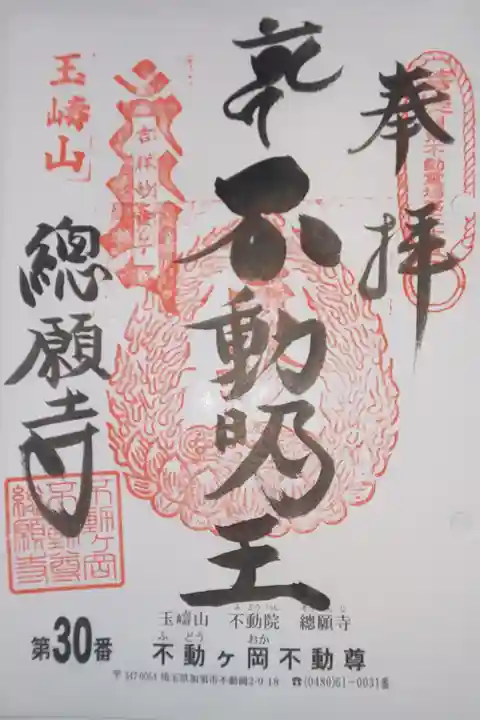 奉拝
不動明王
玉嶹山
總願寺
不動ヶ岡
不動尊
總願寺
玉嶹山 不動院 總願寺
第30番 不動ヶ岡不動尊
〒347-0054 埼玉県加須市不動岡2-9-18 ☎(0480)61-0031番